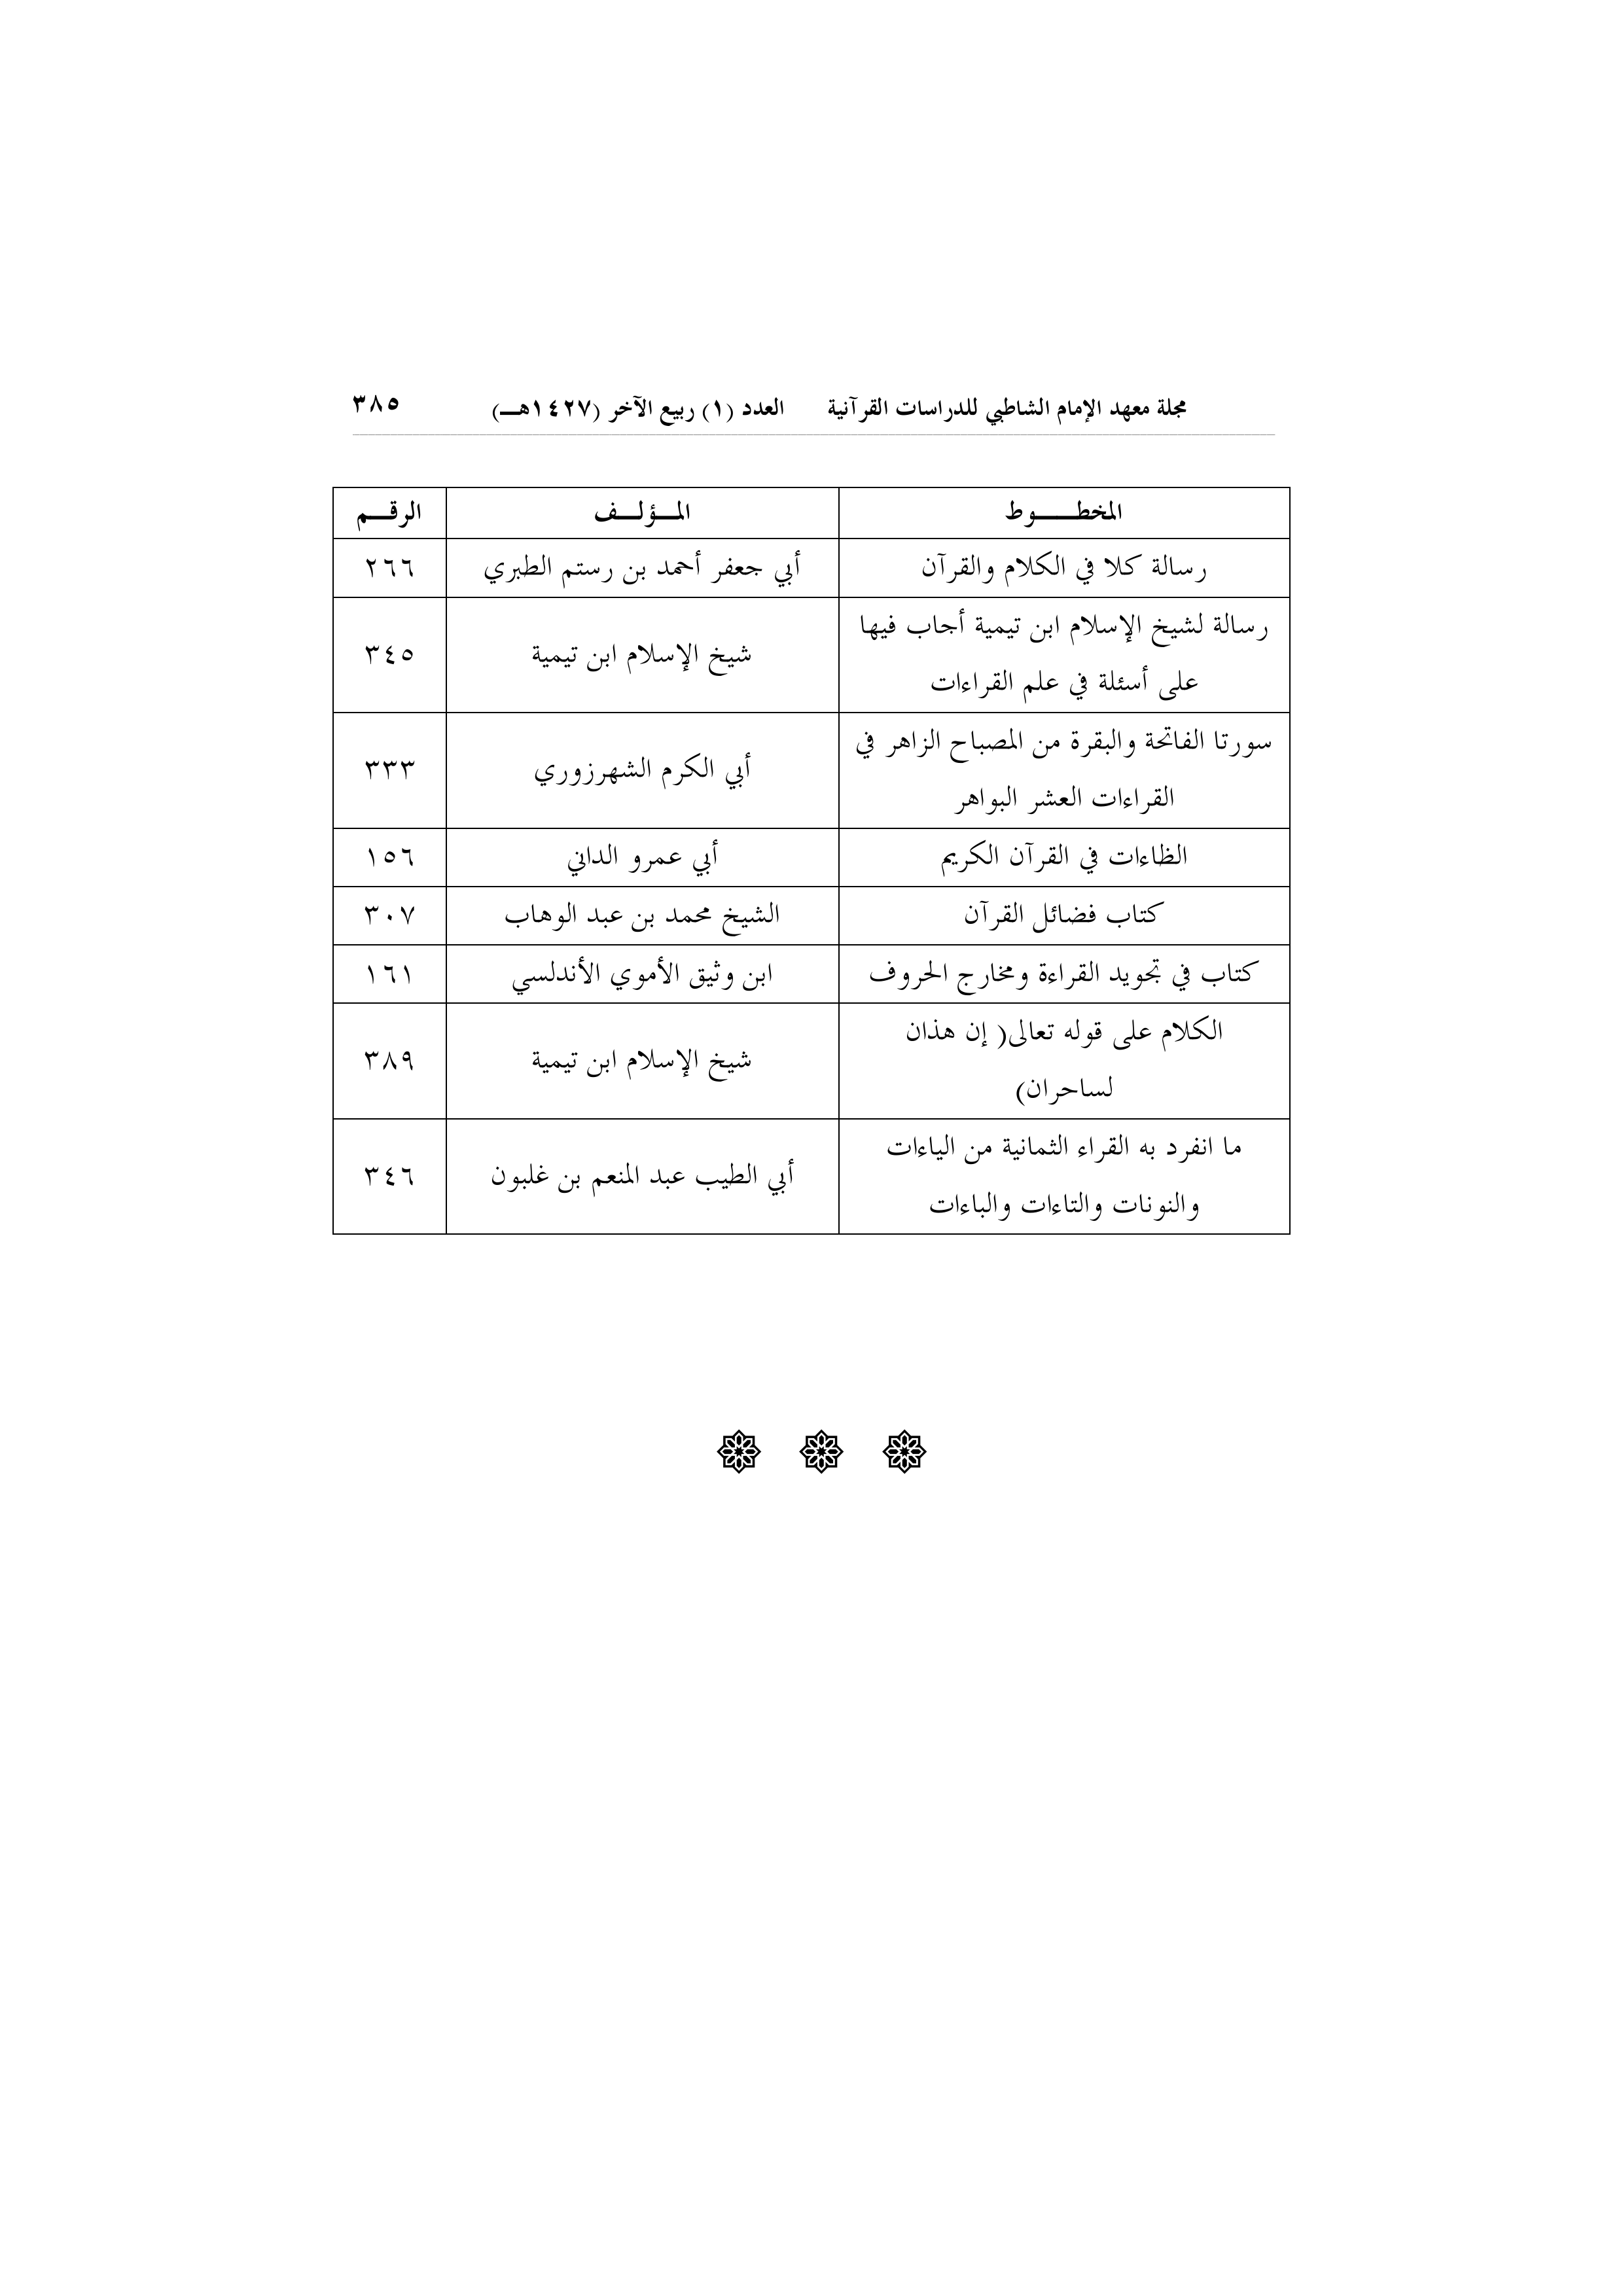 مجلة معهد الإمام الشاطبي للدراسات القرآنية العدد (١) ربيع الآخر (١٤٢٧هـــ) ٣٨٥
المخطــــــوط المـــؤلـــف الرقـــم
رسالة كلا في الكلام والقرآن أبي جعفر أحمد بن رستم الطبري ٢٦٦
رسالة لشيخ الإسلام ابن تيمية أجاب فيها
على أسئلة في علم القراءات شيخ الإسلام ابن تيمية ٣٤٥
سورتا الفاتحة والبقرة من المصباح الزاهر في
القراءات العشر البواهر أبي الكرم الشهرزوري ٣٣٣
الظاءات في القرآن الكريم أبي عمرو الداني ١٥٦
كتاب فضائل القرآن الشيخ محمد بن عبد الوهاب ٣٠٧
كتاب في تجويد القراءة ومخارج الحروف ابن وثيق الأموي الأندلسي ١٦١
الكلام على قوله تعالى( إن هذان
لساحران) شيخ الإسلام ابن تيمية ٣٨٩
ما انفرد به القراء الثمانية من الياءات
والنونات والتاءات والباءات أبي الطيب عبد المنعم بن غلبون ٣٤٦